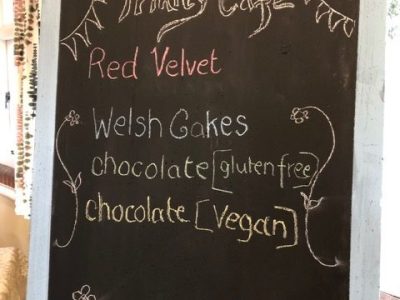 Trinity Cafe
Red Velvet
Welsh Cakes
chocolate [gluten free]
chocolate [vegan]